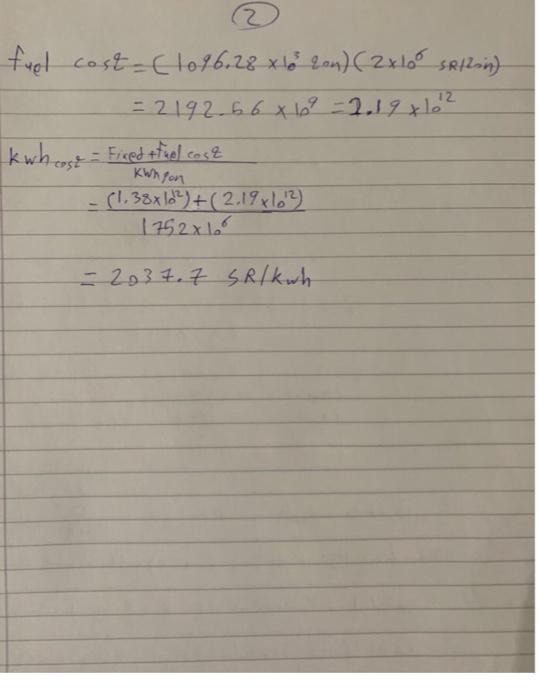 2
fuel cost = (1096.28 × 10³ ton)(2×10⁶ SR/ton)
= 2192.56 × 10⁹ = 2.19 × 10¹²
kwh cost = Fixed + fuel cost / kwh gen
= (1.38×10¹²) + (2.19×10¹²) / 1752×10⁶
= 2037.7 SR/kwh